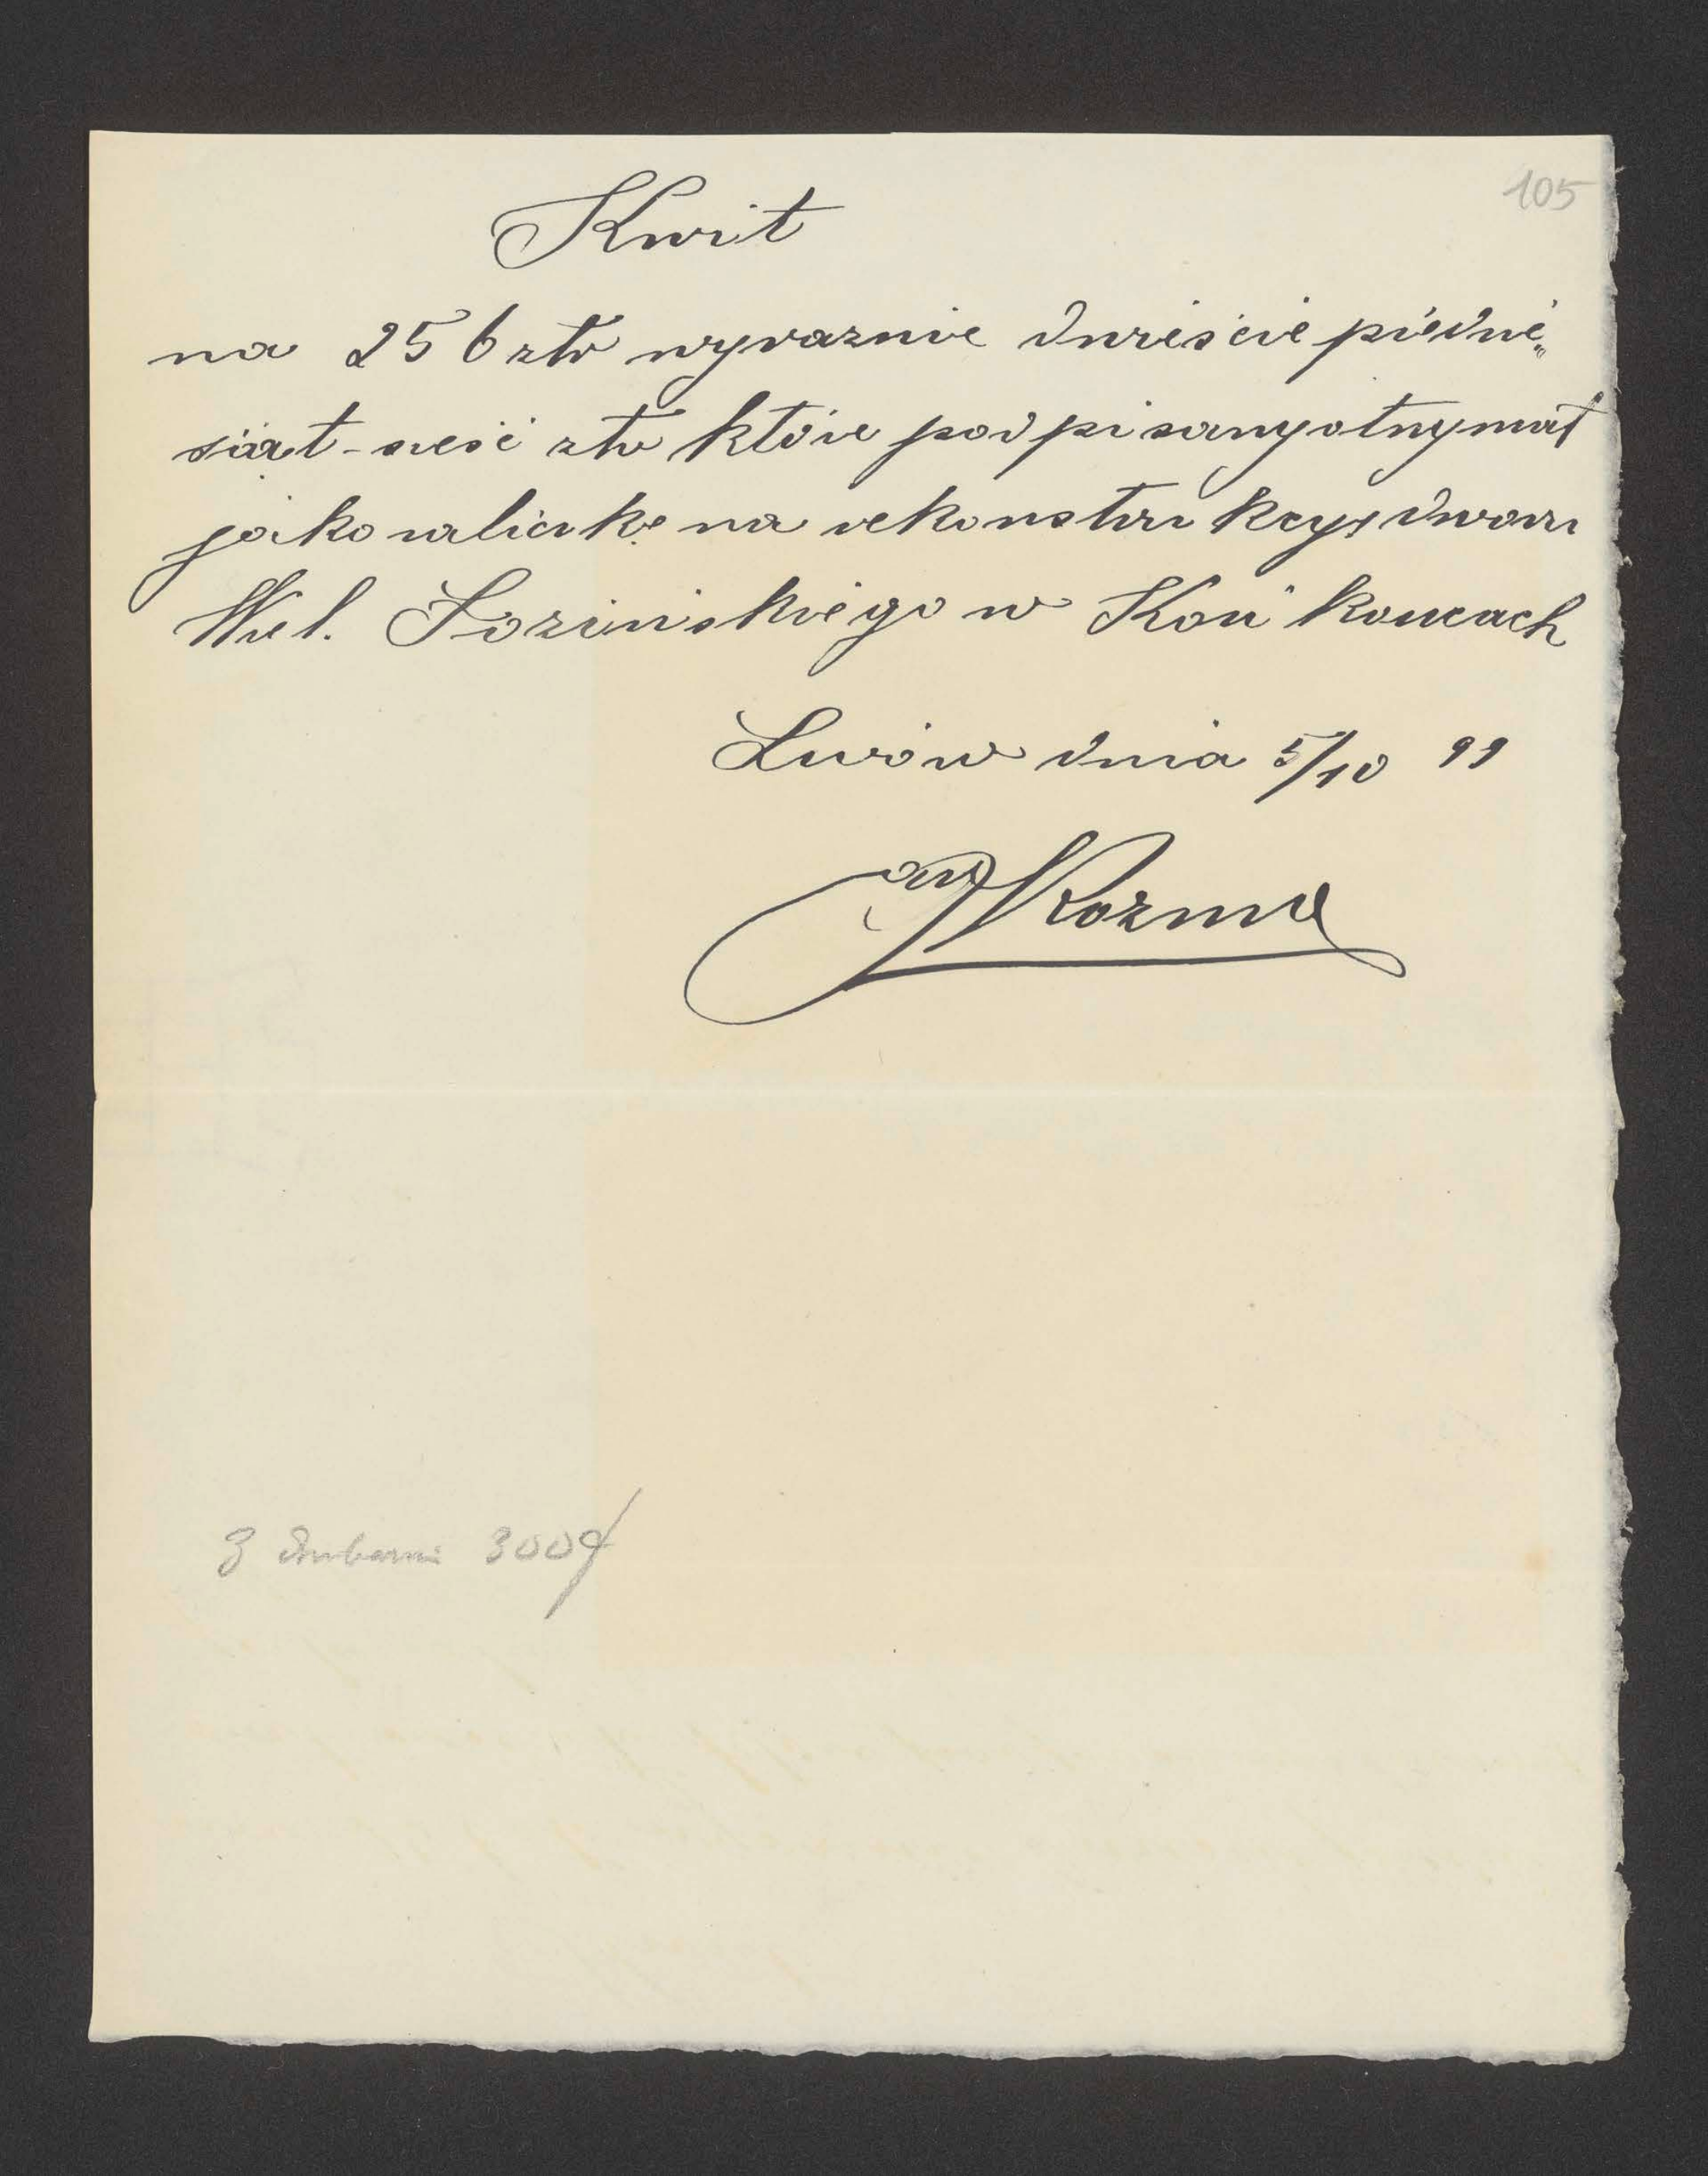 105
Kwit
na 256 złr wyraznie dwieście piedzie„
siąt-sześć złr które podpisany otrzymał
jako zaliczkę na rekonstrukcyę dworu
Wiel. Łozińskiego w Końkowcach
Lwów dnia 5/10 99
Jan Kozma
Z drukarni 300